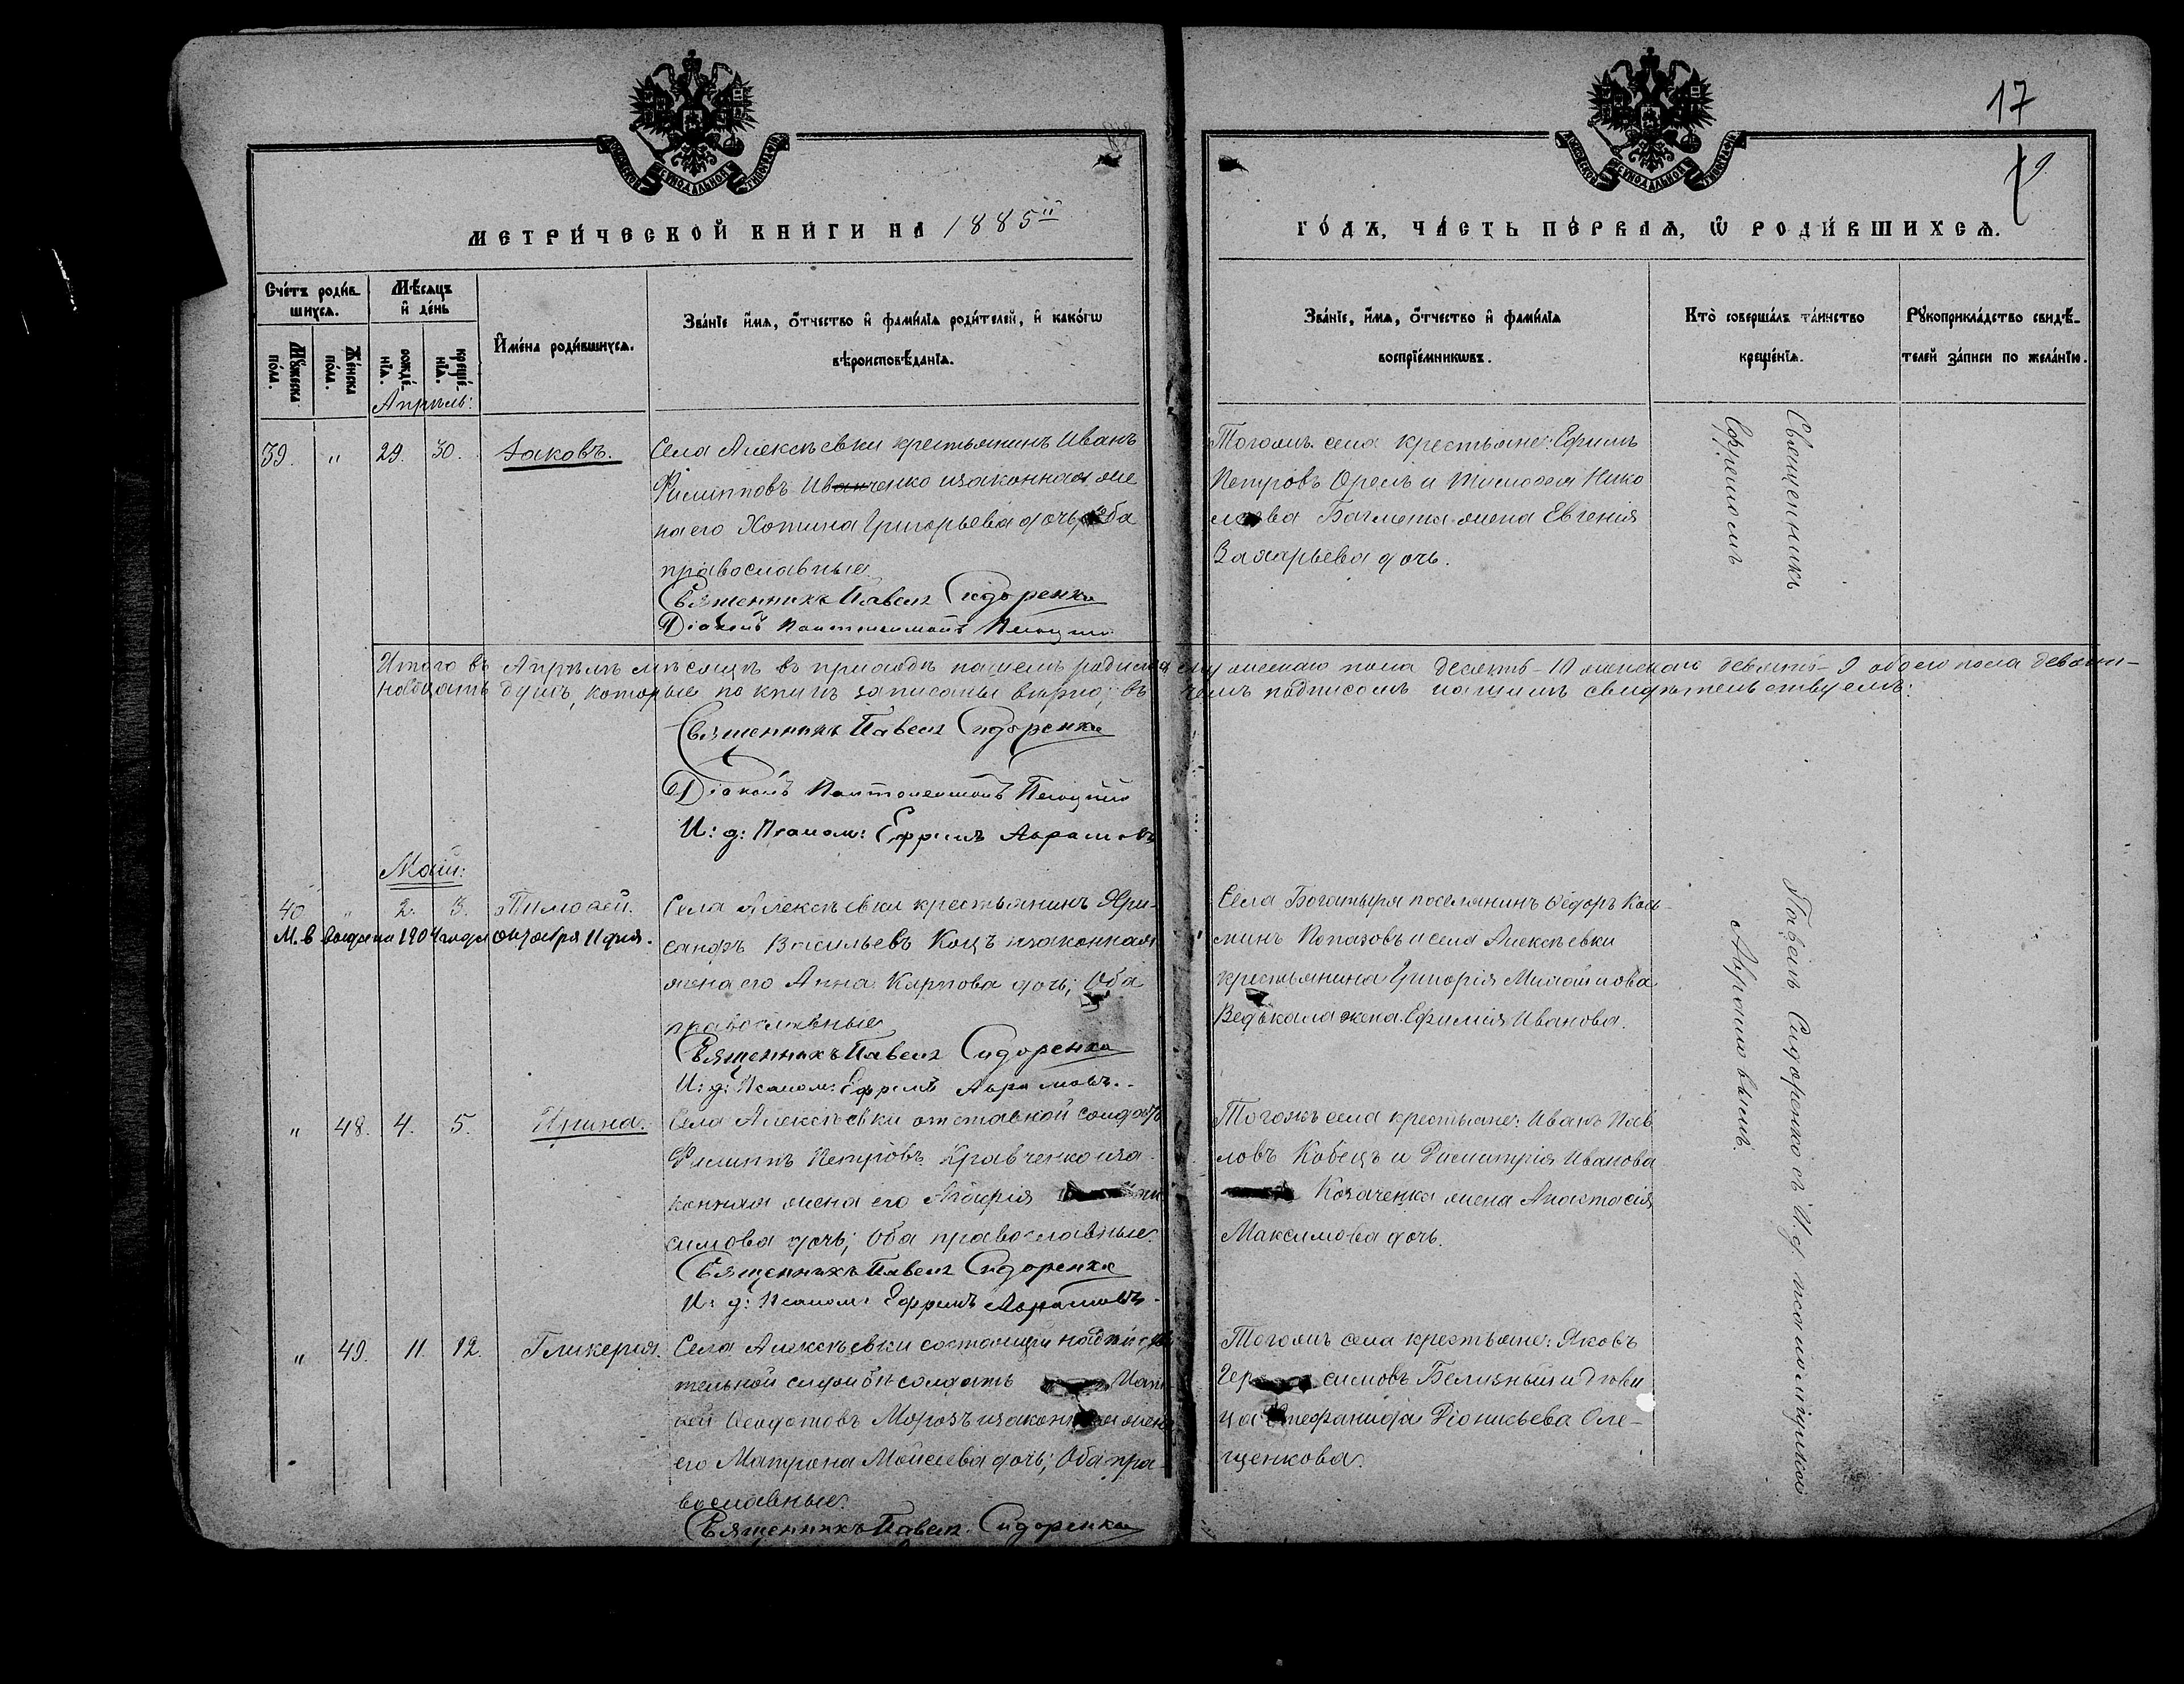 17
МЕТРИ́ЧЕСКОЙ КНИ́ГИ НА 1885й
ГО́ДЪ, ЧА́СТЬ ПЕ́РВАѦ, Ѡ҆ РОДИ́ВШИХСѦ.
Сче́тъ роди́вшихсѧ.
Мѣ́сѧцъ и҆ де́нь
И҆мена̀ роди́вшихсѧ.
Зва́нїе и҆́мѧ, о҆́тчество и҆ фами́лїѧ роди́телей, и҆ како́гѡ
вѣроисповѣ́данїѧ.
Му́жеска по́ла.
Же́нска по́ла.
рожде́нїѧ.
креще́нїѧ.
Зва́нїе, и҆́мѧ, о҆́тчество и҆ фами́лїѧ
воспрїе́мникѡвъ.
Кто̀ соверша́лъ та́инство
креще́нїѧ.
Рꙋкоприкла́дство свидѣ́-
телей за́писи по жела́нїю.
Апрѣль:
39. " 29. 30. Іаковъ.
Села Алексѣевки крестьянинъ Иванъ
Филипповъ Иванченко изаконная же
на его Хотина Григорьева дочь, оба
православные
Священникъ Павелъ Сидоренко
Діаконъ Пантелеимонъ
Тогожъ села крестьяне: Ефимъ
Петровъ Орелъ и Нико
лаева Багмета жена Евгенія
Захарьева дочь.
Священникъ
Итого въ Апрѣлѣ мѣсяцѣ въ приходѣ нашемъ родилось мужескаго пола десять – 10 женскаго девять – 9 обоего пола девят-
надцать душъ, которые по книгѣ записаны вѣрно; въ чемъ подписомъ нашимъ свидѣтельствуемъ:
Священникъ Павелъ Сидоренко
Діаконъ Пантелеимонъ
И: д: Псалом: Ефремъ Аврамовъ
Май:
40. " 2. 3. Тимофей.
М. в выдана 1904 года октября 11 дня.
Села Алексѣевки крестьянинъ Хри-
санфъ Васильевъ Коцъ изаконная
жена его Анна Карпова дочь; Оба
православные
Священникъ Павелъ Сидоренко
И: д: Псалом: Ефремъ Аврамовъ.
Села Богатыря поселянинъ Ѳедоръ Кось-
минъ Попазовъ и села Алексѣевки
крестьянина Григорія Михайлова
Ведькала жена Ефимія Иванова.
Павелъ Сидоренко съ И. д. псаломщика
Аврамовымъ.
" 48. 4. 5. Ирина.
Села Алексѣевки отставной солдатъ
Филиппъ Петровъ Кравченко иза
конная жена его Агафія
симова дочь; Оба православные.
Священникъ Павелъ Сидоренко
И: д: Псалом: Ефремъ Аврамовъ.
Тогожъ села крестьяне: Иванъ Пав
ловъ Кобецъ и Димитрія Иванова
Козаченка жена Анастасія
Максимова дочь.
" 49. 11. 12. Гликерія.
Села Алексѣевки состоящій
солдатъ
Ѳеодотовъ Морозъ изаконная жена
его Матрона Моисеева дочь; Оба пра-
вославные.
Священникъ Павелъ Сидоренко
Тогожъ села крестьяне: Яковъ
Герасимовъ и дѣви
ца Стефанида Діонисьева Оле-
щенкова.